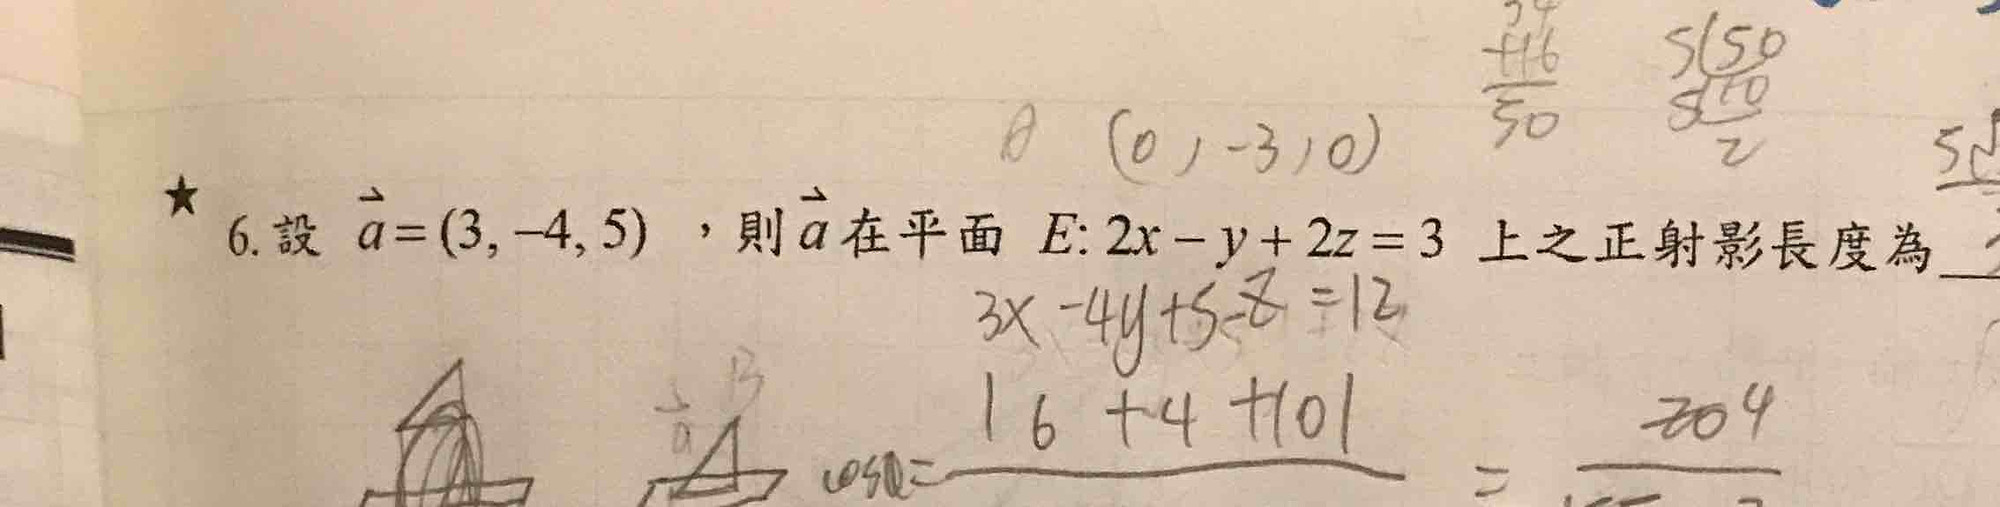 +16
50
5(50
5(10
2
θ (0, -3, 0)
★ 6. 設 a⃗ = (3, –4, 5) ,則 a⃗ 在平面 E: 2x – y + 2z = 3 上之正射影長度為
3x -4y+5z =12
B
a⃗
cosθ= |6 +4 +10| = 20 4